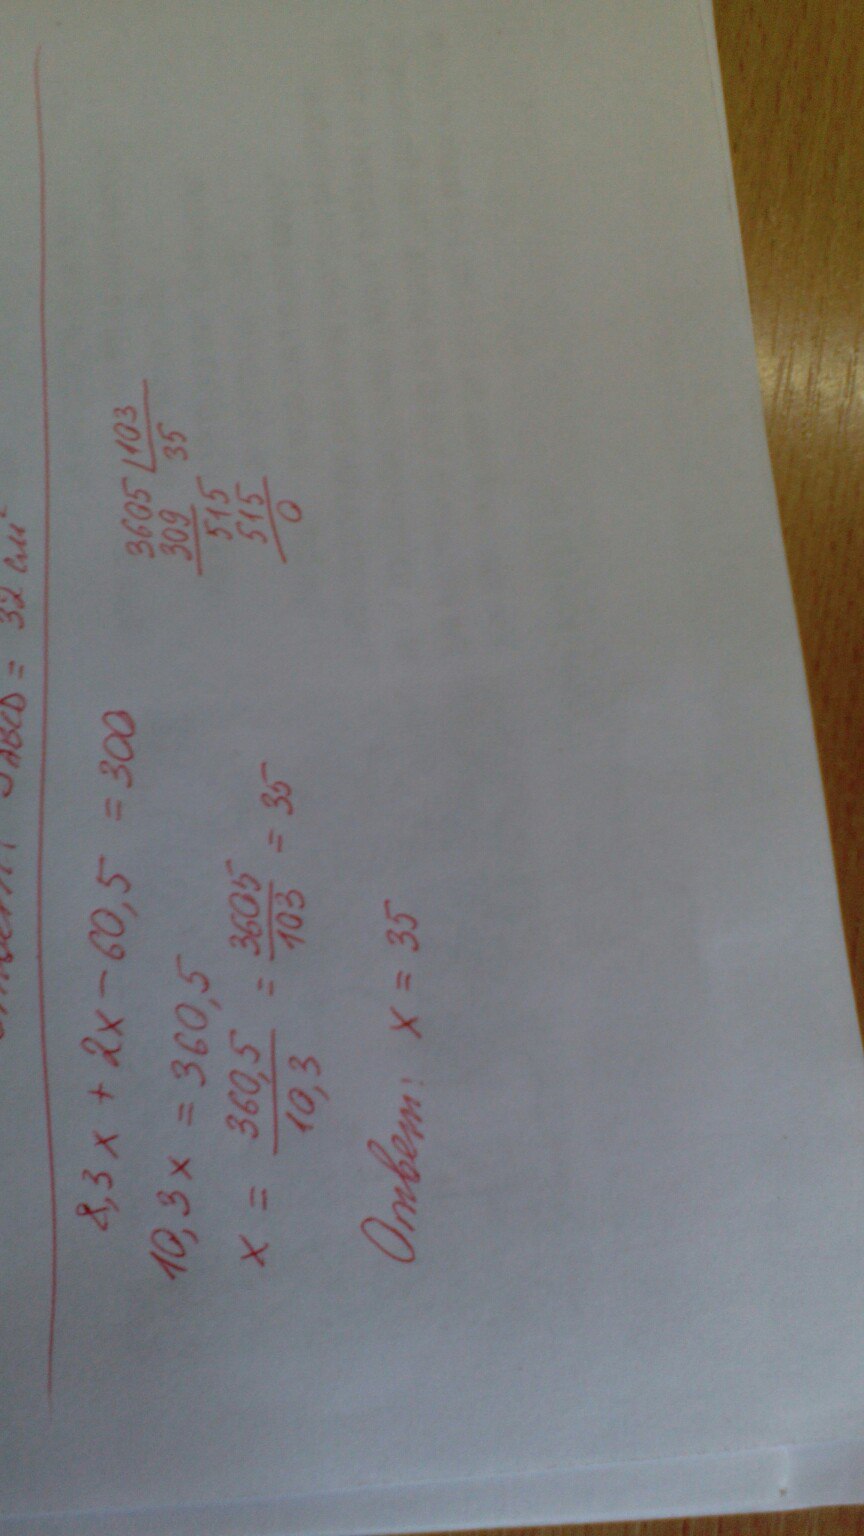 Ответ: SABCD = 32 см²
8,3x + 2x - 60,5 = 300
10,3x = 360,5
x = 360,5/10,3 = 3605/103 = 35
Ответ: x = 35
3605 103
309 35
515
515
0